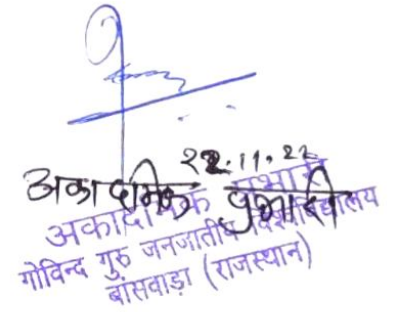 22.11.22
अकादमिक प्रभारी
अकादमिक प्रभारी
गोविन्द गुरु जनजातीय विश्वविद्यालय
बांसवाड़ा (राजस्थान)